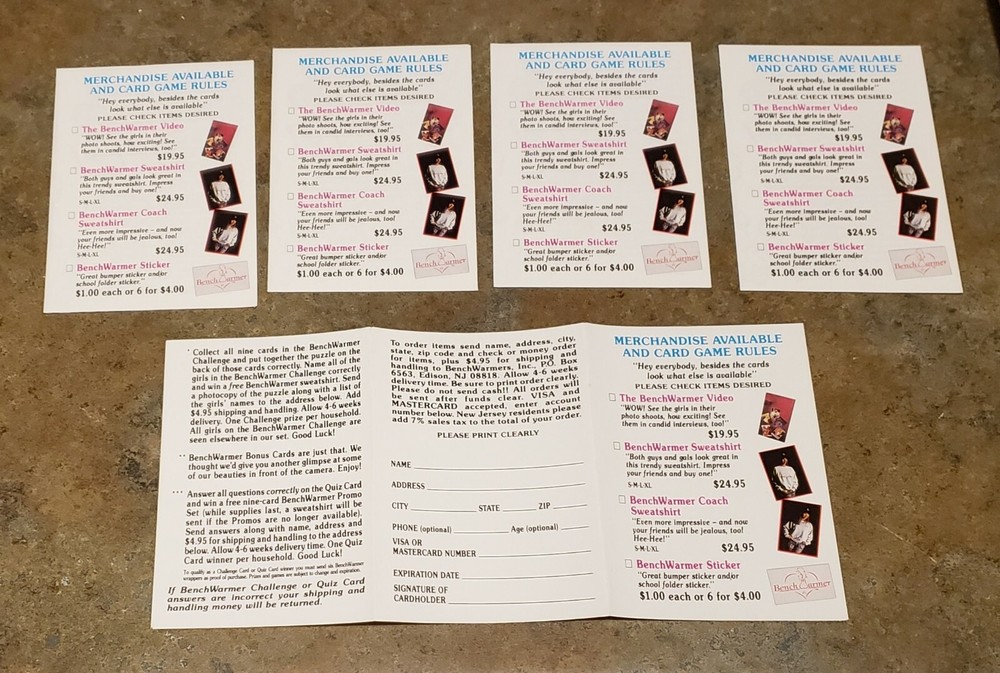 MERCHANDISE AVAILABLE
AND CARD GAME RULES
"Hey everybody, besides the cards
look what else is available"
PLEASE CHECK ITEMS DESIRED
The BenchWarmer Video
"WOW! See the girls in their
photo shoots, how exciting! See
them in candid interviews, too!"
$19.95
BenchWarmer Sweatshirt
"Both guys and gals look great in
this trendy sweatshirt. Impress
your friends and buy one!"
S-M-L-XL $24.95
BenchWarmer Coach
Sweatshirt
"Even more impressive – and now
your friends will be jealous, too!
Hee-Hee!"
S-M-L-XL $24.95
BenchWarmer Sticker
"Great bumper sticker and/or
school folder sticker."
$1.00 each or 6 for $4.00
BenchWarmer
MERCHANDISE AVAILABLE
AND CARD GAME RULES
"Hey everybody, besides the cards
look what else is available"
PLEASE CHECK ITEMS DESIRED
The BenchWarmer Video
"WOW! See the girls in their
photo shoots, how exciting! See
them in candid interviews, too!"
$19.95
BenchWarmer Sweatshirt
"Both guys and gals look great in
this trendy sweatshirt. Impress
your friends and buy one!"
S-M-L-XL $24.95
BenchWarmer Coach
Sweatshirt
"Even more impressive – and now
your friends will be jealous, too!
Hee-Hee!"
S-M-L-XL $24.95
BenchWarmer Sticker
"Great bumper sticker and/or
school folder sticker."
$1.00 each or 6 for $4.00
BenchWarmer
MERCHANDISE AVAILABLE
AND CARD GAME RULES
"Hey everybody, besides the cards
look what else is available"
PLEASE CHECK ITEMS DESIRED
The BenchWarmer Video
"WOW! See the girls in their
photo shoots, how exciting! See
them in candid interviews, too!"
$19.95
BenchWarmer Sweatshirt
"Both guys and gals look great in
this trendy sweatshirt. Impress
your friends and buy one!"
S-M-L-XL $24.95
BenchWarmer Coach
Sweatshirt
"Even more impressive – and now
your friends will be jealous, too!
Hee-Hee!"
S-M-L-XL $24.95
BenchWarmer Sticker
"Great bumper sticker and/or
school folder sticker."
$1.00 each or 6 for $4.00
BenchWarmer
MERCHANDISE AVAILABLE
AND CARD GAME RULES
"Hey everybody, besides the cards
look what else is available"
PLEASE CHECK ITEMS DESIRED
The BenchWarmer Video
"WOW! See the girls in their
photo shoots, how exciting! See
them in candid interviews, too!"
$19.95
BenchWarmer Sweatshirt
"Both guys and gals look great in
this trendy sweatshirt. Impress
your friends and buy one!"
S-M-L-XL $24.95
BenchWarmer Coach
Sweatshirt
"Even more impressive – and now
your friends will be jealous, too!
Hee-Hee!"
S-M-L-XL $24.95
BenchWarmer Sticker
"Great bumper sticker and/or
school folder sticker."
$1.00 each or 6 for $4.00
BenchWarmer
* Collect all nine cards in the BenchWarmer
Challenge and put together the puzzle on the
back of those cards correctly. Name all of the
girls in the BenchWarmer Challenge correctly
and win a free BenchWarmer sweatshirt. Send
a photocopy of the puzzle along with a list of
the girls' names to the address below. Add
$4.95 shipping and handling. Allow 4-6 weeks
delivery. One Challenge prize per household.
All girls on the BenchWarmer Challenge are
seen elsewhere in our set. Good Luck!
** BenchWarmer Bonus Cards are just that. We
thought we'd give you another glimpse at some
of our beauties in front of the camera. Enjoy!
*** Answer all questions correctly on the Quiz Card
and win a free nine-card BenchWarmer Promo
Set (while supplies last, a sweatshirt will be
sent if the Promos are no longer available).
Send answers along with name, address and
$4.95 for shipping and handling to the address
below. Allow 4-6 weeks delivery time. One Quiz
Card winner per household. Good Luck!
To qualify as a Challenge Card or Quiz Card winner you must send six BenchWarmer
wrappers as proof of purchase. Prizes and games are subject to change and expiration.
If BenchWarmer Challenge or Quiz Card
answers are incorrect your shipping and
handling money will be returned.
To order items send name, address, city,
state, zip code and check or money order
for items, plus $4.95 for shipping and
handling to BenchWarmers, Inc., P.O. Box
6563, Edison, NJ 08818. Allow 4-6 weeks
delivery time. Be sure to print order clearly.
Please do not send cash!! All orders will
be sent after funds clear. VISA and
MASTERCARD accepted, enter account
number below. New Jersey residents please
add 7% sales tax to the total of your order.
PLEASE PRINT CLEARLY
NAME
ADDRESS
CITY STATE ZIP
PHONE (optional) Age (optional)
VISA OR
MASTERCARD NUMBER
EXPIRATION DATE
SIGNATURE OF
CARDHOLDER
MERCHANDISE AVAILABLE
AND CARD GAME RULES
"Hey everybody, besides the cards
look what else is available"
PLEASE CHECK ITEMS DESIRED
The BenchWarmer Video
"WOW! See the girls in their
photo shoots, how exciting! See
them in candid interviews, too!"
$19.95
BenchWarmer Sweatshirt
"Both guys and gals look great in
this trendy sweatshirt. Impress
your friends and buy one!"
S-M-L-XL $24.95
BenchWarmer Coach
Sweatshirt
"Even more impressive – and now
your friends will be jealous, too!
Hee-Hee!"
S-M-L-XL $24.95
BenchWarmer Sticker
"Great bumper sticker and/or
school folder sticker."
$1.00 each or 6 for $4.00
BenchWarmer